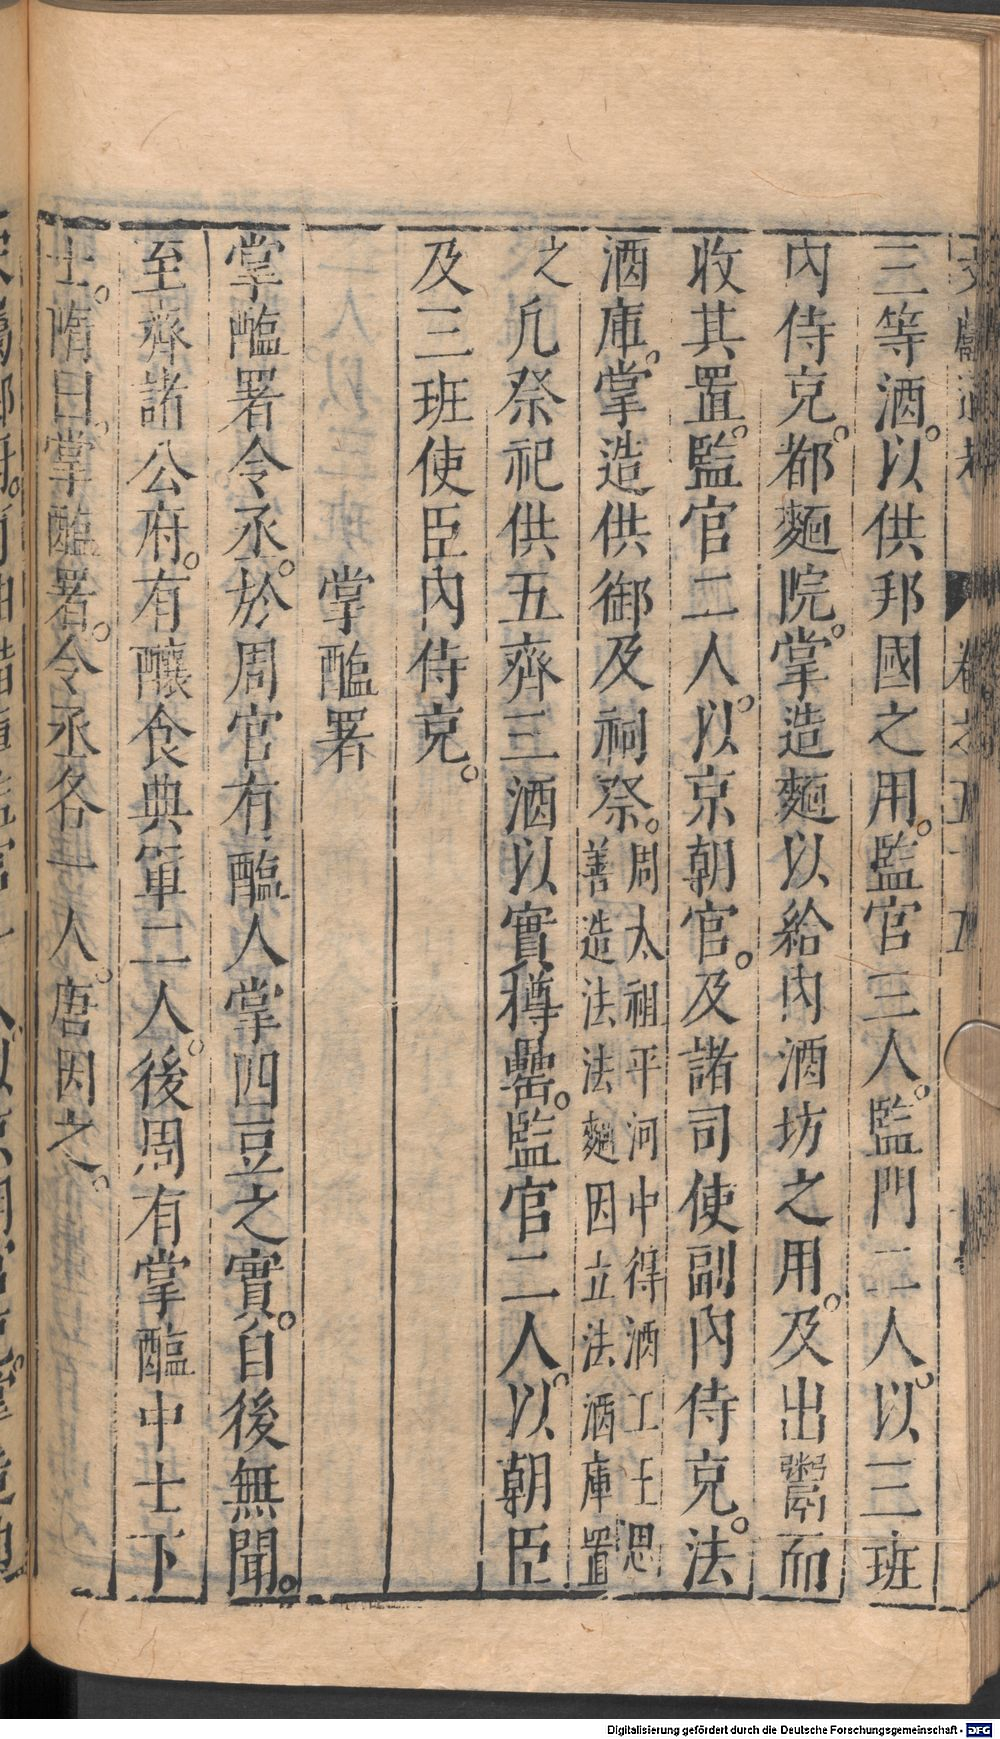 文獻通考　卷之五十五
三等酒。以供邦國之用。監官三人。監門二人。以三班
內侍克。都麵院。掌造麵以給內酒坊之用。及出鬻而
收其置。監官二人。以京朝官。及諸司使副內侍克。法
酒庫。掌造供御及祠祭。周太祖平河中得酒工王思
善造法法麵因立法酒庫置
之凡祭祀供五齊三酒以實罇罍。監官二人。以朝臣
及三班使臣內侍克。
掌醢署
掌醢署令丞。於周官有醢人掌四豆之實。自後無聞。
至齊諸公府。有釀食典軍二人。後周有掌醢中士下
士。隋曰。掌醢署。令丞各一人。唐因之。
Digitalisierung gefördert durch die Deutsche Forschungsgemeinschaft - DFG